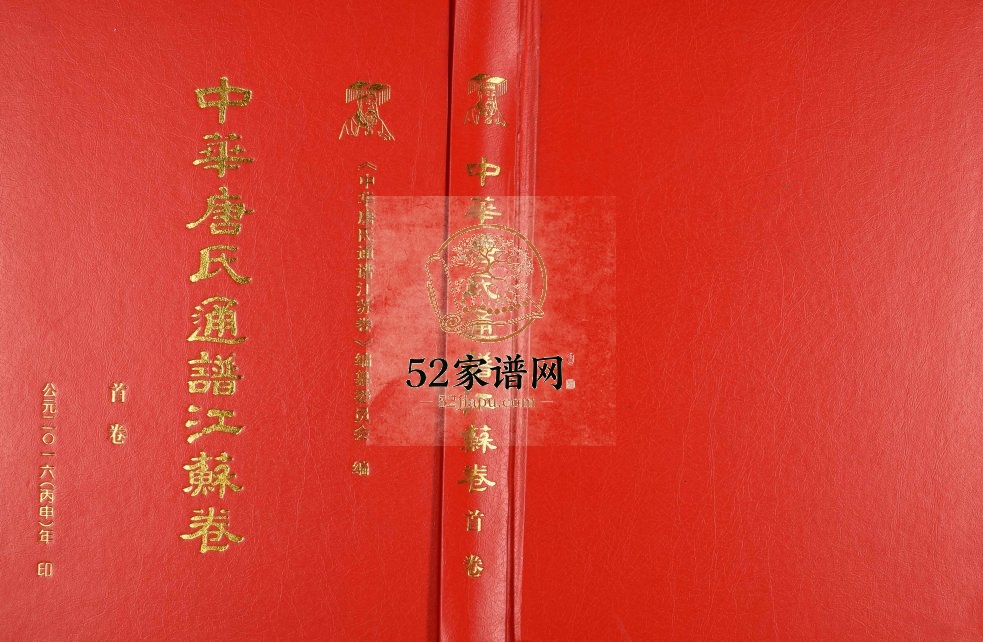 《中华唐氏通谱江苏卷》编纂委员会 编
中華唐氏通譜江蘇卷
首卷
公元二〇一六(丙申)年 印
中華 氏通譜 蘇卷 首卷
52家谱网
52jiapu.com